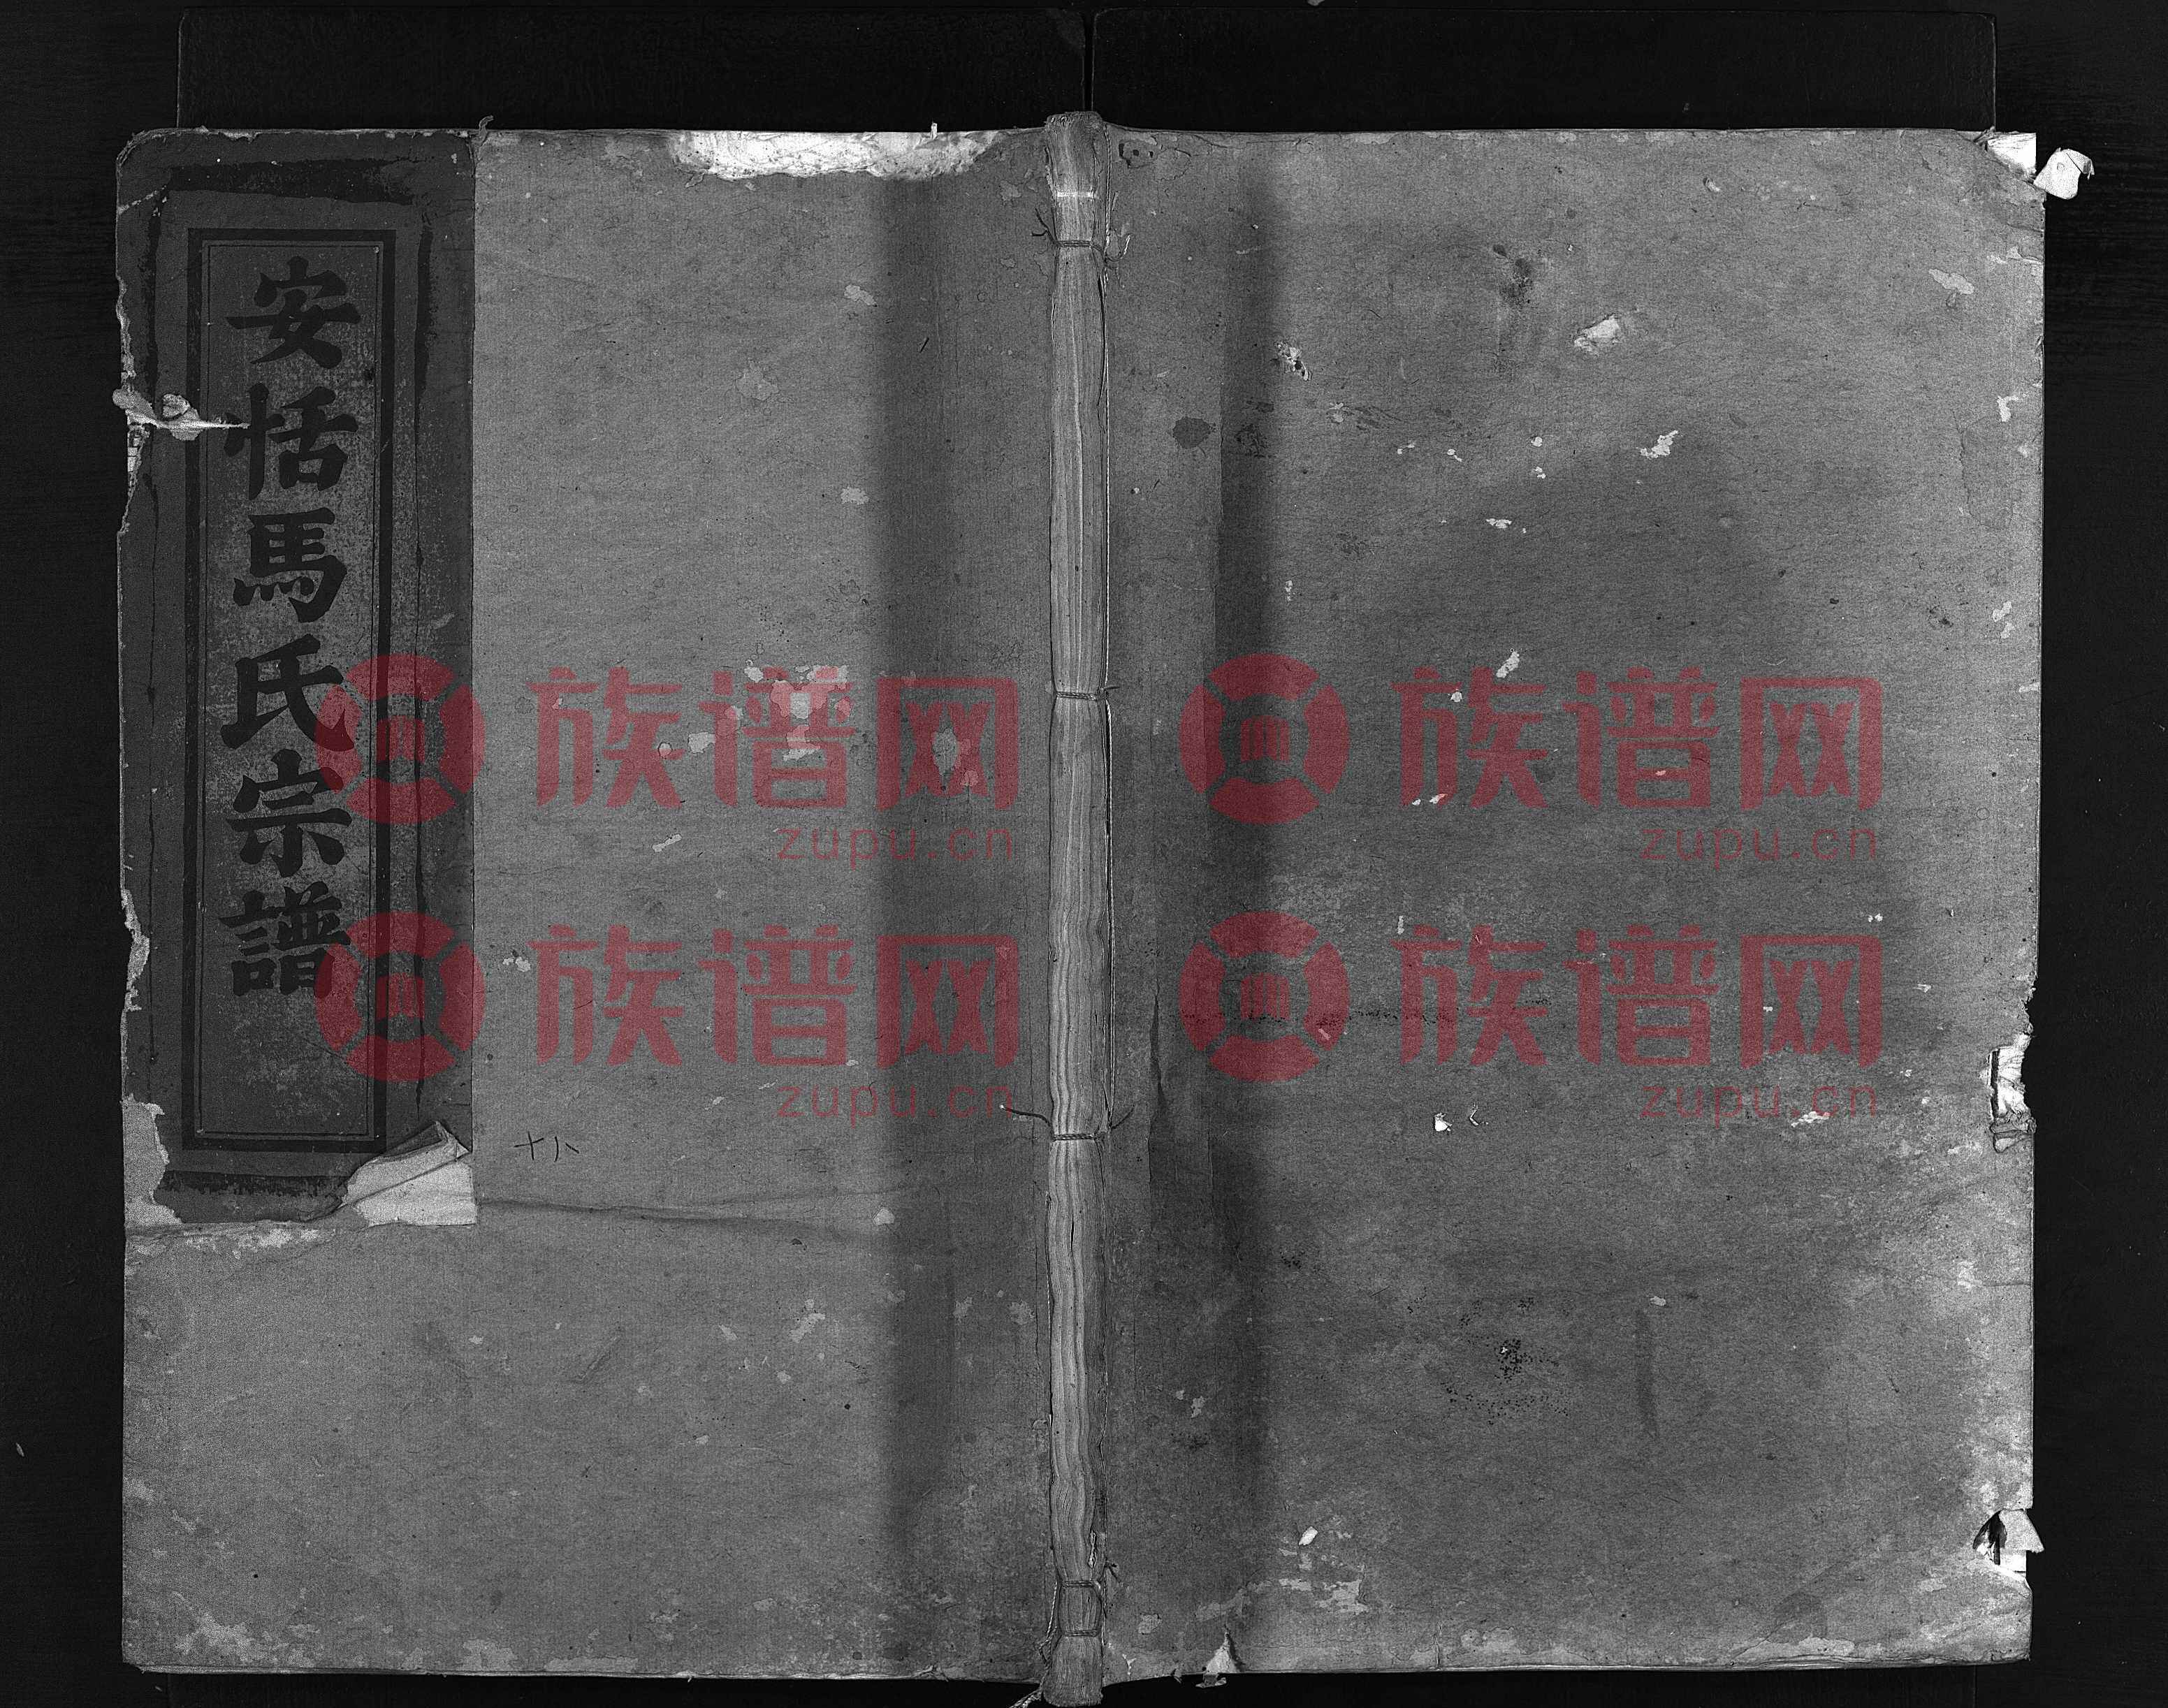 安恬馬氏宗譜
十八
族谱网
zupu.cn
族谱网
zupu.cn
族谱网
zupu.cn
族谱网
zupu.cn